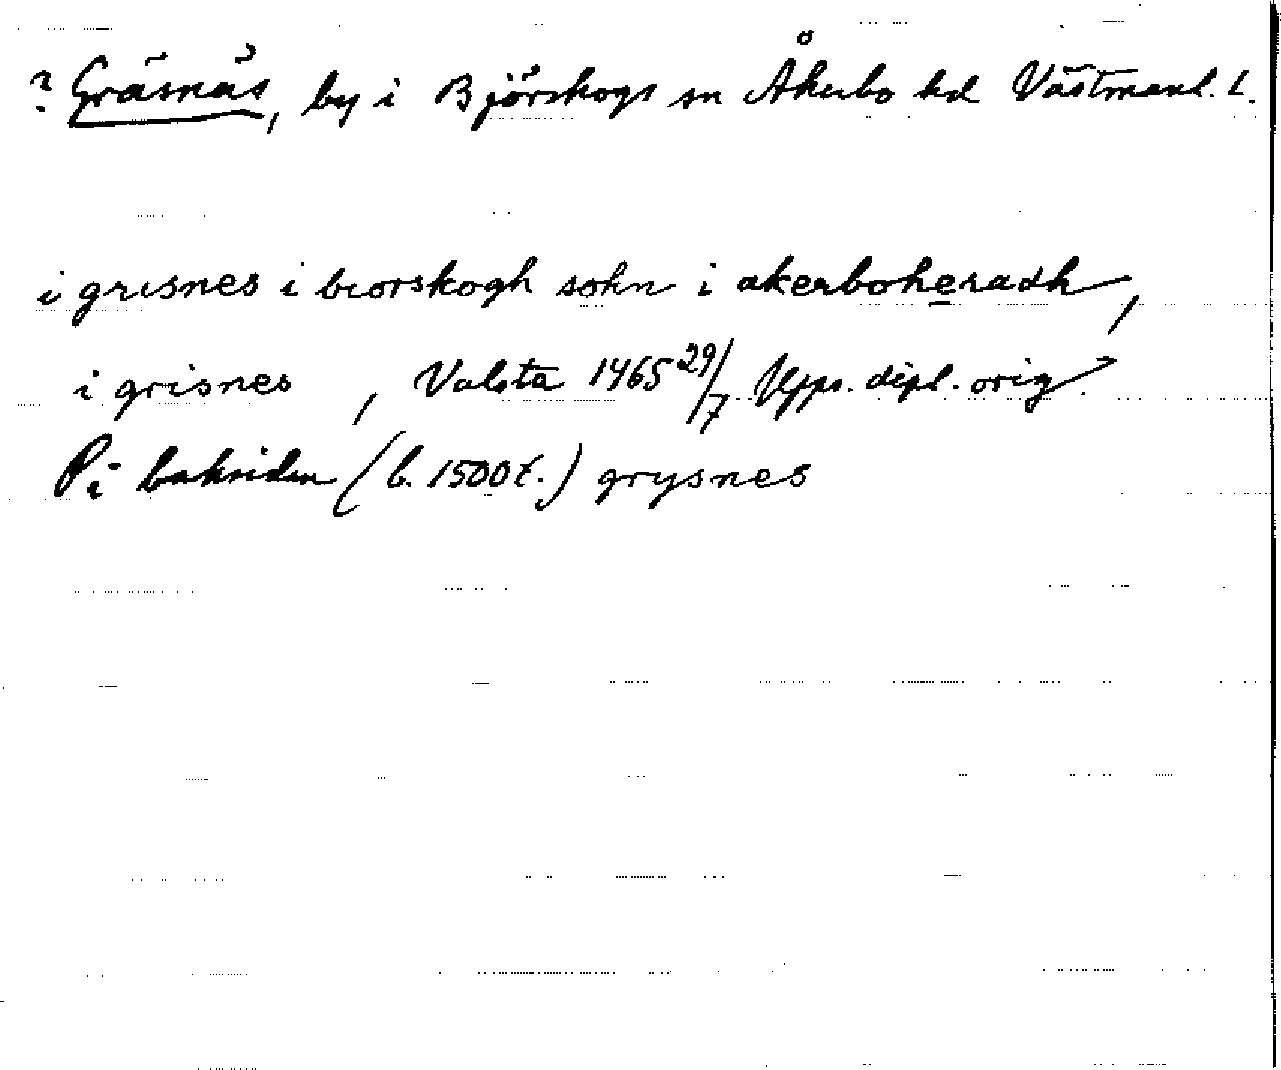 ? Gräsnäs, by i Björskogs sn Åkerbo hd Västmanl. l.
i grisnes i biorskogh sokn i akerboheradh,
i grisnes , Valsta 1465 29/7 Upps. dipl. orig.
På baksidan (b. 1500 t.) grysnes